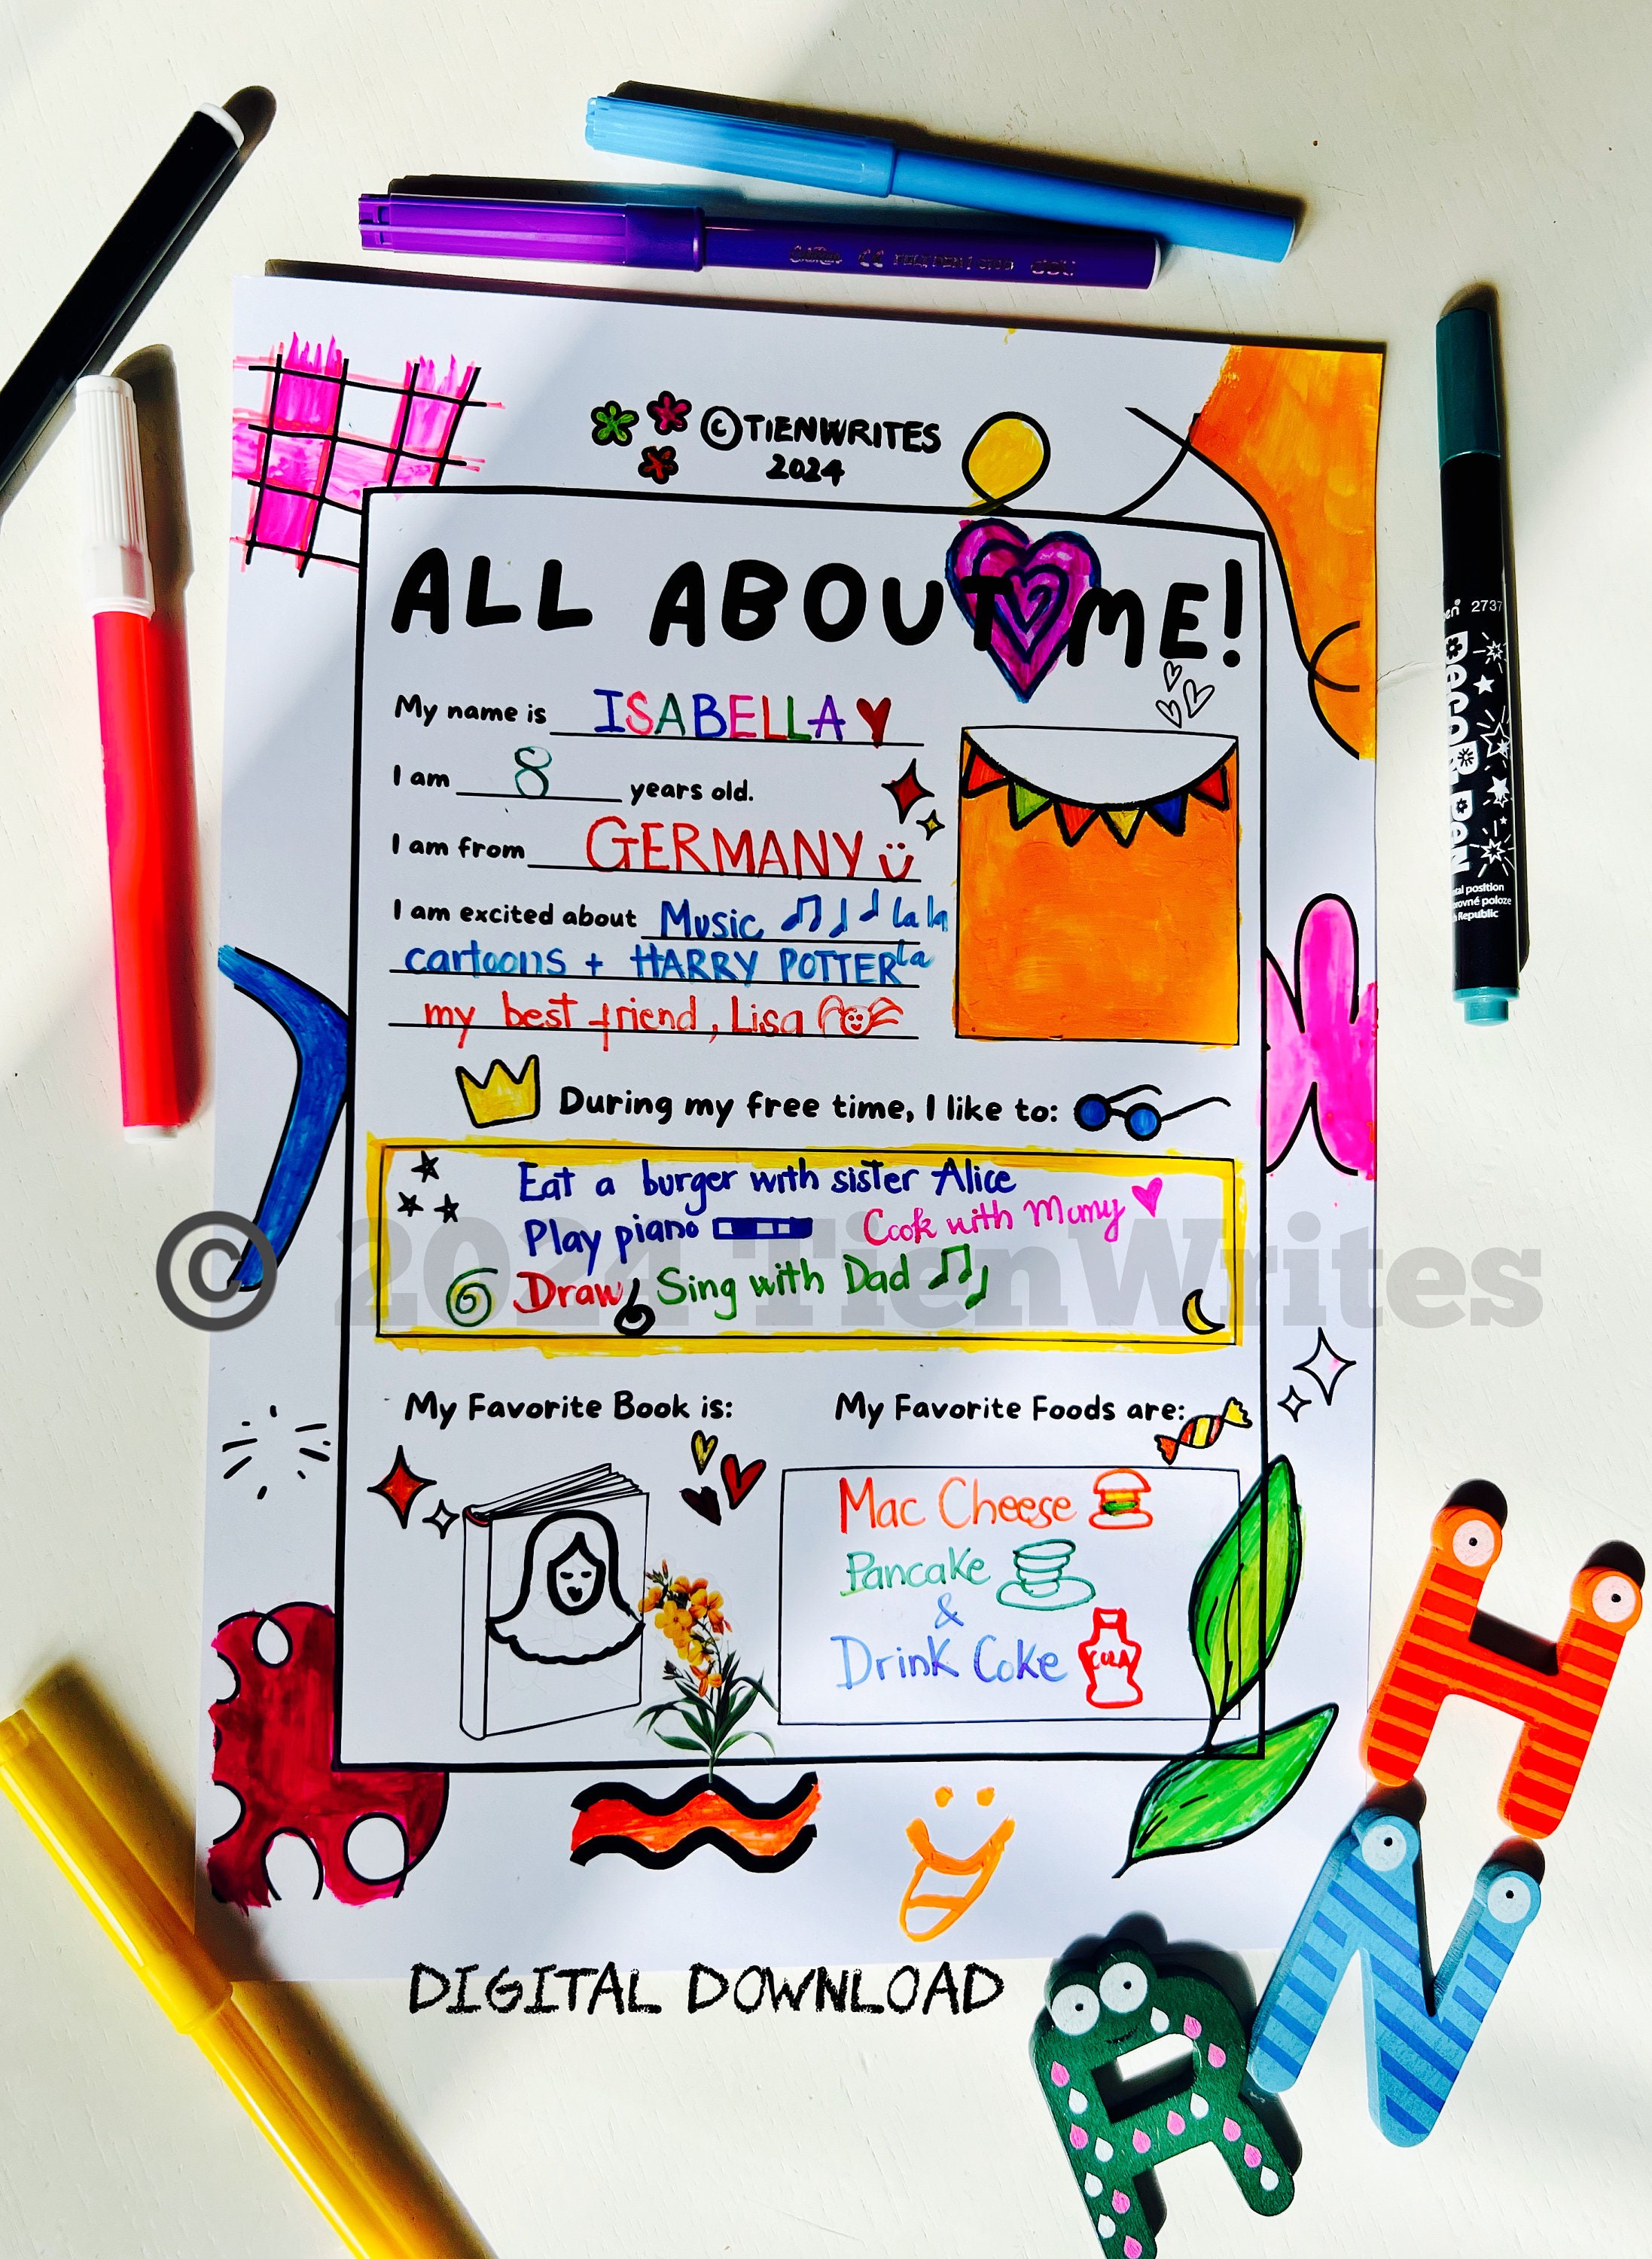 © TIENWRITES
2024
ALL ABOUT ME!
My name is ISABELLA
I am 8 years old.
I am from GERMANY ü
I am excited about Music la la
cartoons + HARRY POTTER la
my best friend, Lisa
During my free time, I like to:
Eat a burger with sister Alice
Play piano Cook with Mumy
Draw Sing with Dad
© 2024 TienWrites
My Favorite Book is:
My Favorite Foods are:
Mac Cheese
Pancake
&
Drink Coke COLA
DIGITAL DOWNLOAD
2737
DECOR PEN
Republic
H
N
R